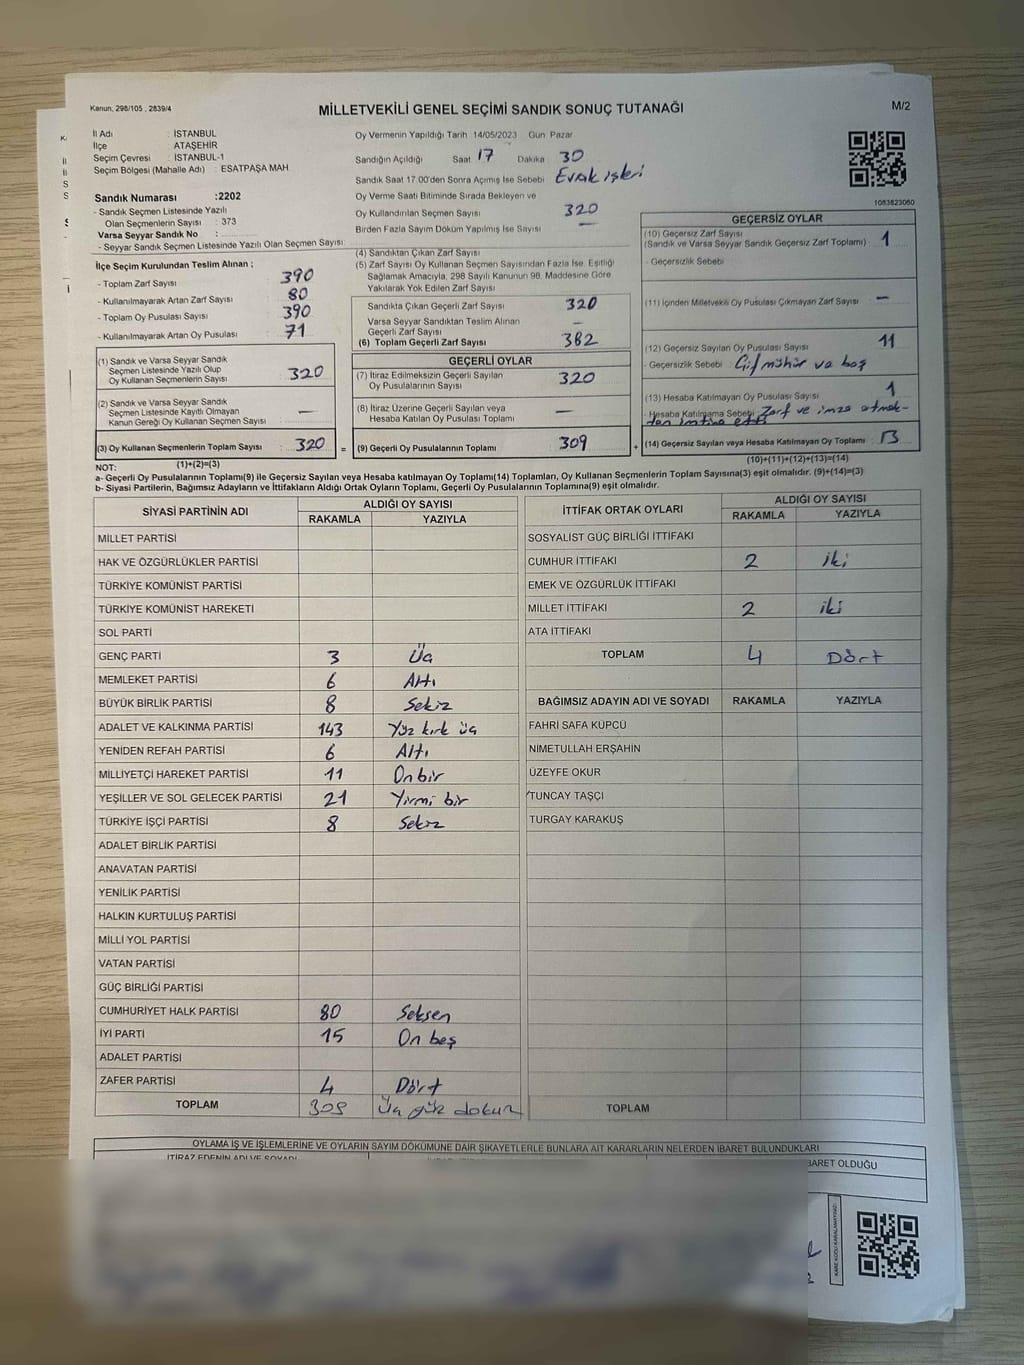 Kanun, 298/105 , 2839/4
MİLLETVEKİLİ GENEL SEÇİMİ SANDIK SONUÇ TUTANAĞI
M/2
İl Adı : İSTANBUL
İlçe ATAŞEHİR
Seçim Çevresi : İSTANBUL-1
Seçim Bölgesi (Mahalle Adı) : ESATPAŞA MAH
Oy Vermenin Yapıldığı Tarih 14/05/2023 Gün Pazar
Sandığın Açıldığı Saat 17 Dakika 30
Sandık Saat 17:00'den Sonra Açımış İse Sebebi Evrak işleri
Oy Verme Saati Bitiminde Sırada Bekleyen ve
Oy Kullandırılan Seçmen Sayısı 320
Birden Fazla Sayım Döküm Yapılmış İse Sayısı —
1083823060
Sandık Numarası :2202
- Sandık Seçmen Listesinde Yazılı
Olan Seçmenlerin Sayısı : 373
Varsa Seyyar Sandık No :
- Seyyar Sandık Seçmen Listesinde Yazılı Olan Seçmen Sayısı:
İlçe Seçim Kurulundan Teslim Alınan ;
- Toplam Zarf Sayısı : 390
- Kullanılmayarak Artan Zarf Sayısı : 80
- Toplam Oy Pusulası Sayısı : 390
- Kullanılmayarak Artan Oy Pusulası : 71
(1) Sandık ve Varsa Seyyar Sandık
Seçmen Listesinde Yazılı Olup
Oy Kullanan Seçmenlerin Sayısı : 320
(2) Sandık ve Varsa Seyyar Sandık
Seçmen Listesinde Kayıtlı Olmayan
Kanun Gereği Oy Kullanan Seçmen Sayısı : —
(3) Oy Kullanan Seçmenlerin Toplam Sayısı : 320 =
(1)+(2)=(3)
(4) Sandıktan Çıkan Zarf Sayısı
(5) Zarf Sayısı Oy Kullanan Seçmen Sayısından Fazla İse, Eşitliği
Sağlamak Amacıyla, 298 Sayılı Kanunun 98. Maddesine Göre
Yakılarak Yok Edilen Zarf Sayısı
Sandıkta Çıkan Geçerli Zarf Sayısı 320
Varsa Seyyar Sandıktan Teslim Alınan
Geçerli Zarf Sayısı —
(6) Toplam Geçerli Zarf Sayısı : 382
GEÇERLİ OYLAR
(7) İtiraz Edilmeksizin Geçerli Sayılan
Oy Pusulalarının Sayısı : 320
(8) İtiraz Üzerine Geçerli Sayılan veya
Hesaba Katılan Oy Pusulaları Toplamı : —
(9) Geçerli Oy Pusulalarının Toplamı : 309 +
GEÇERSİZ OYLAR
(10) Geçersiz Zarf Sayısı
(Sandık ve Varsa Seyyar Sandık Geçersiz Zarf Toplamı) : 1
- Geçersizlik Sebebi :
(11) İçinden Milletvekili Oy Pusulası Çıkmayan Zarf Sayısı : —
(12) Geçersiz Sayılan Oy Pusulası Sayısı : 11
- Geçersizlik Sebebi : Çif mühür va boş
(13) Hesaba Katılmayan Oy Pusulası Sayısı : 1
- Hesaba Katılmama Sebebi : Zarf ve imza atmak-
tan imtina etti
(14) Geçersiz Sayılan veya Hesaba Katılmayan Oy Toplamı : 13
(10)+(11)+(12)+(13)=(14)
NOT:
a- Geçerli Oy Pusulalarının Toplamı(9) ile Geçersiz Sayılan veya Hesaba katılmayan Oy Toplamı(14) Toplamları, Oy Kullanan Seçmenlerin Toplam Sayısına(3) eşit olmalıdır. (9)+(14)=(3)
b- Siyasi Partilerin, Bağımsız Adayların ve İttifakların Aldığı Ortak Oyların Toplamı, Geçerli Oy Pusulalarının Toplamına(9) eşit olmalıdır.
SİYASİ PARTİNİN ADI ALDIĞI OY SAYISI
RAKAMLA YAZIYLA
MİLLET PARTİSİ
HAK VE ÖZGÜRLÜKLER PARTİSİ
TÜRKİYE KOMÜNİST PARTİSİ
TÜRKİYE KOMÜNİST HAREKETİ
SOL PARTİ
GENÇ PARTİ 3 Üç
MEMLEKET PARTİSİ 6 Altı
BÜYÜK BİRLİK PARTİSİ 8 Sekiz
ADALET VE KALKINMA PARTİSİ 143 Yüz kırk üç
YENİDEN REFAH PARTİSİ 6 Altı
MİLLİYETÇİ HAREKET PARTİSİ 11 Onbir
YEŞİLLER VE SOL GELECEK PARTİSİ 21 Yirmi bir
TÜRKİYE İŞÇİ PARTİSİ 8 Sekiz
ADALET BİRLİK PARTİSİ
ANAVATAN PARTİSİ
YENİLİK PARTİSİ
HALKIN KURTULUŞ PARTİSİ
MİLLİ YOL PARTİSİ
VATAN PARTİSİ
GÜÇ BİRLİĞİ PARTİSİ
CUMHURİYET HALK PARTİSİ 80 Seksen
İYİ PARTİ 15 On beş
ADALET PARTİSİ
ZAFER PARTİSİ 4 Dört
TOPLAM 309 Üç yüz dokuz
İTTİFAK ORTAK OYLARI ALDIĞI OY SAYISI
RAKAMLA YAZIYLA
SOSYALİST GÜÇ BİRLİĞİ İTTİFAKI
CUMHUR İTTİFAKI 2 iki
EMEK VE ÖZGÜRLÜK İTTİFAKI
MİLLET İTTİFAKI 2 iki
ATA İTTİFAKI
TOPLAM 4 Dört
BAĞIMSIZ ADAYIN ADI VE SOYADI RAKAMLA YAZIYLA
FAHRİ SAFA KÜPCÜ
NİMETULLAH ERŞAHİN
ÜZEYFE OKUR
TUNCAY TAŞÇI
TURGAY KARAKUŞ
TOPLAM
OYLAMA İŞ VE İŞLEMLERİNE VE OYLARIN SAYIM DÖKÜMÜNE DAİR ŞİKAYETLERLE BUNLARA AİT KARARLARIN NELERDEN İBARET BULUNDUKLARI
İTİRAZ EDENİN ADI VE SOYADI
İBARET OLDUĞU
KARE KODU KARALAMAYINIZ!